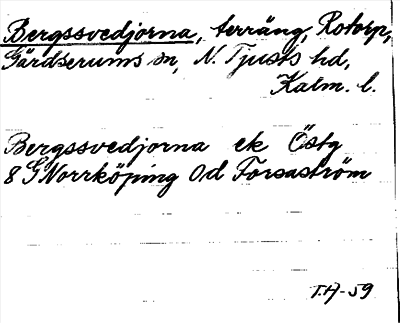 Bergssvedjorna, terräng, Rotorp,
Gärdserums sn, N. Tjusts hd,
Kalm. l.
Bergssvedjorna ek Östg
8 G Norrköping 0d Forsaström
T.H-59